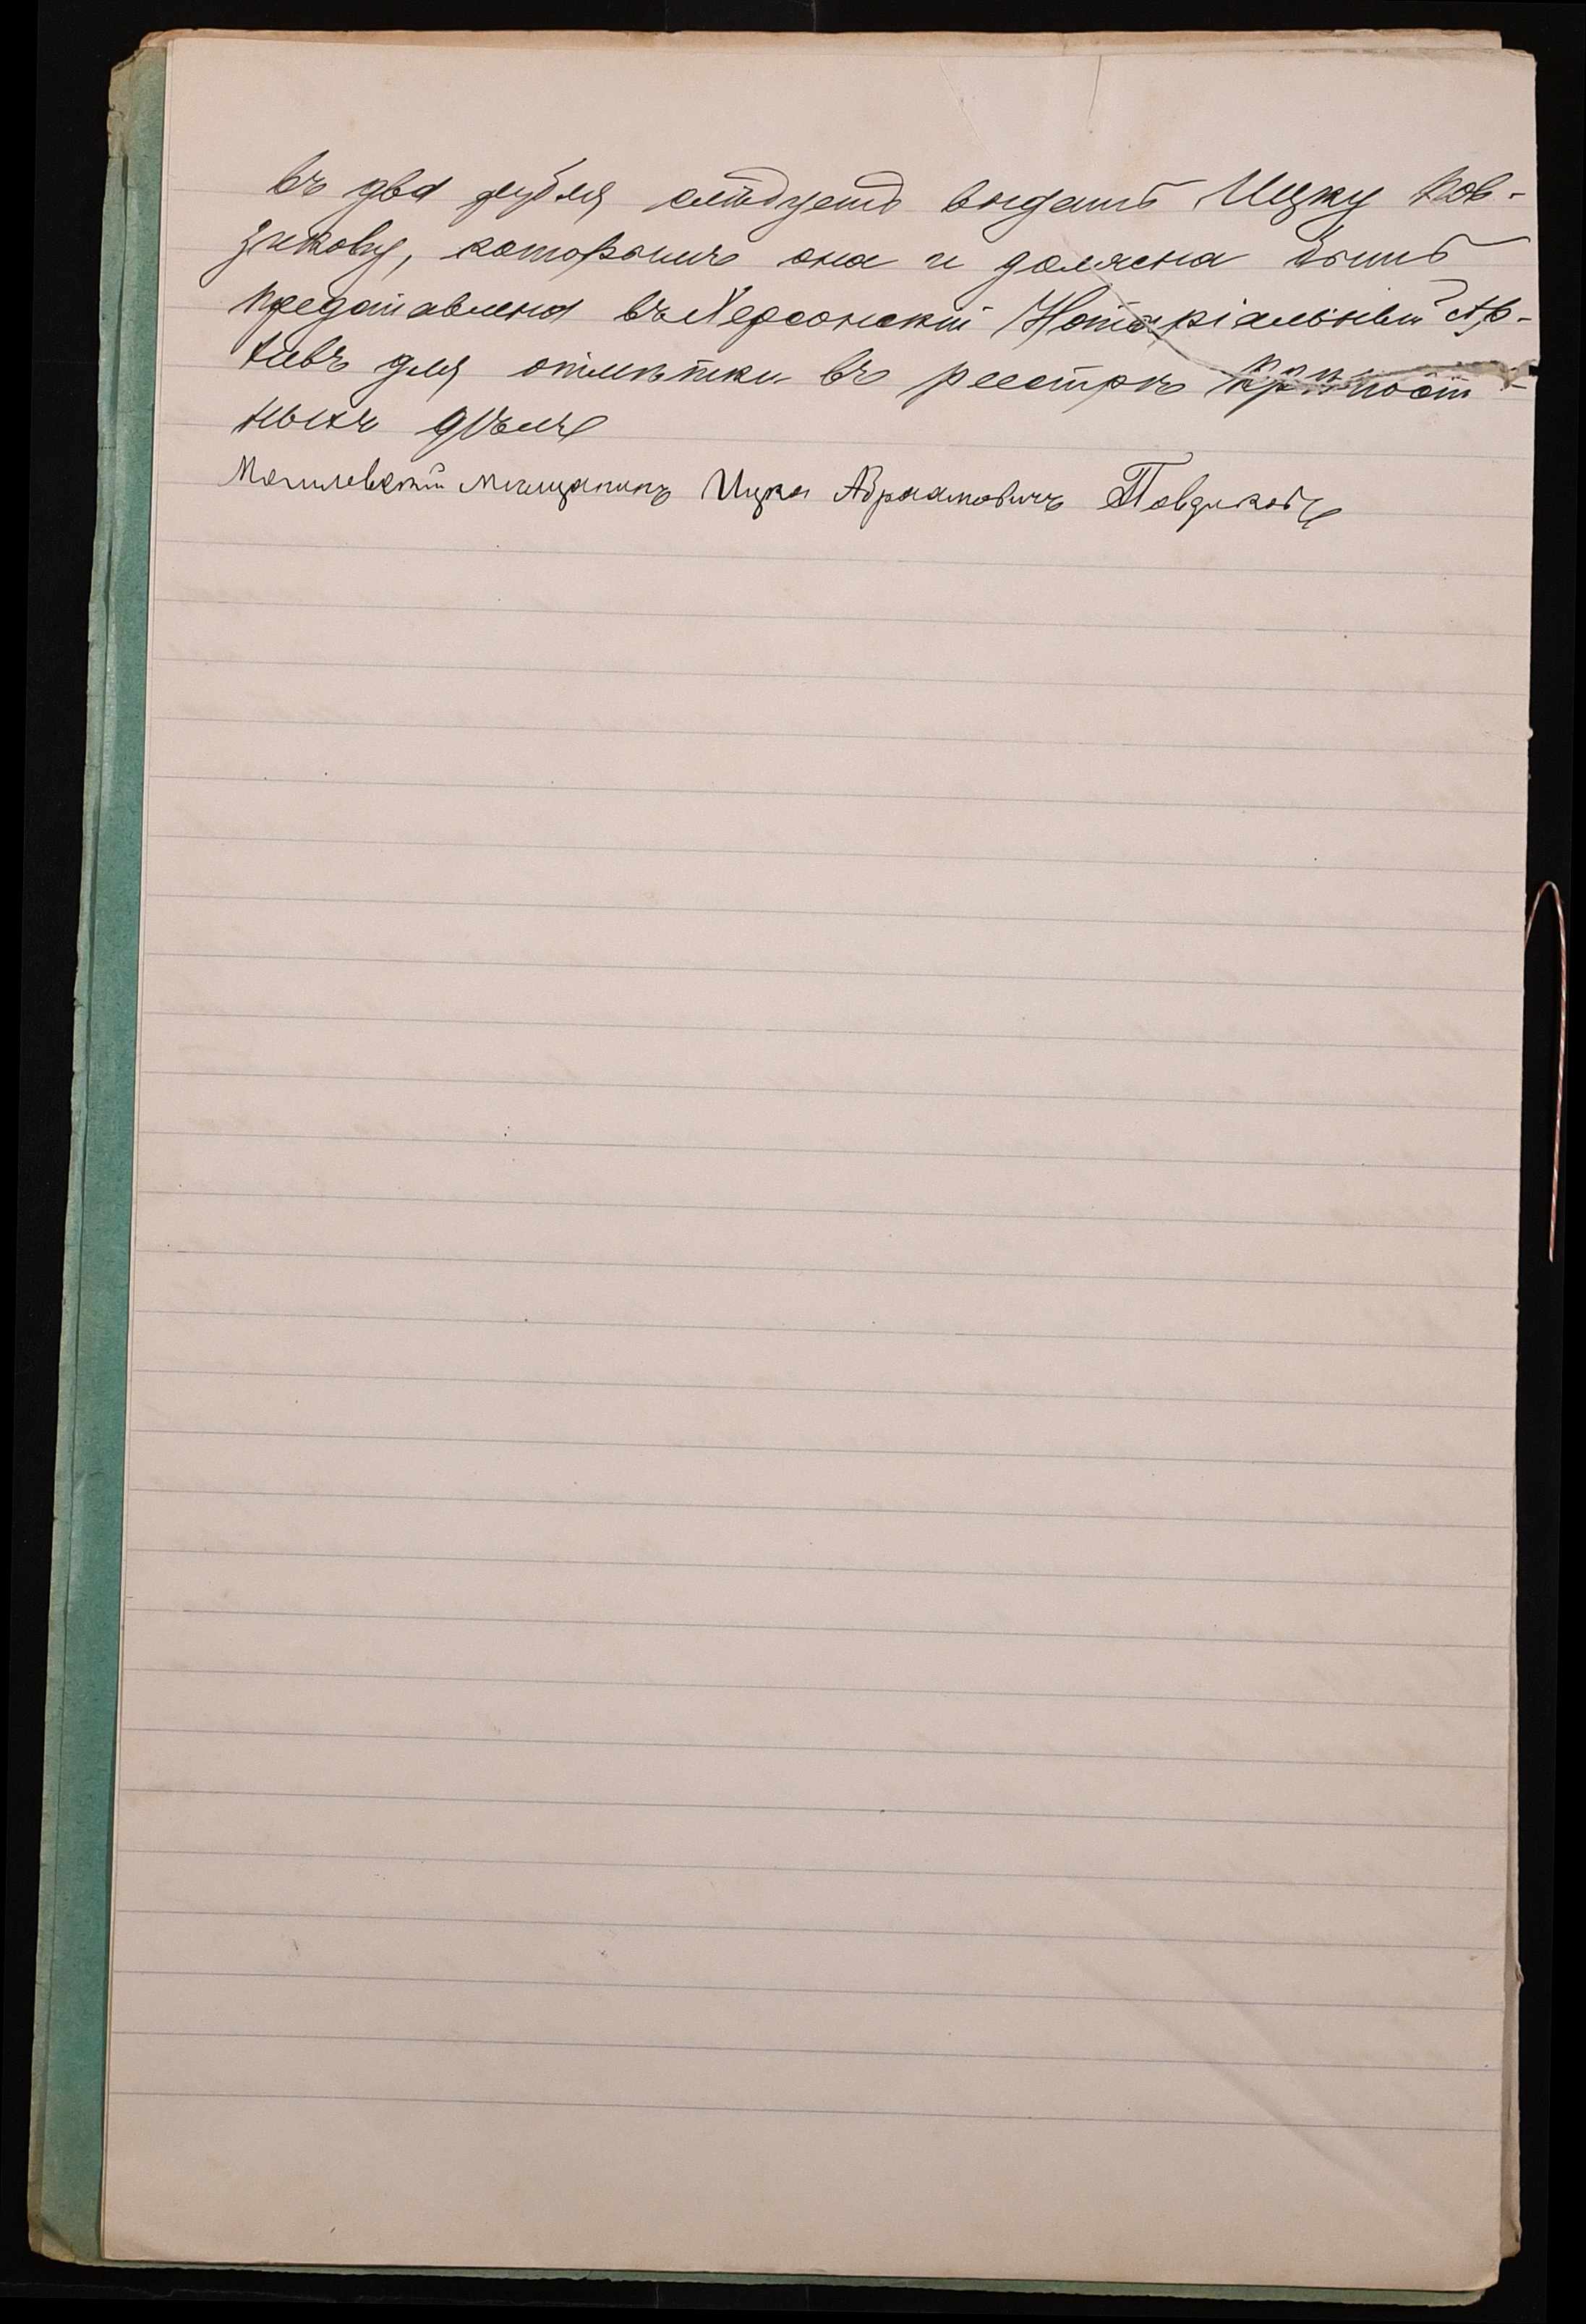 въ два рубля слѣдуетъ выдать Ицку Пов-
зикову, которымъ она и должна быть
представлена въ Херсонскій Нотаріальный Ар-
хивъ для отмѣтки въ реестрѣ крѣпост-
ныхъ дѣлъ
Могилевскій мѣщанинъ Ицка Абрамовичъ Повзиковъ